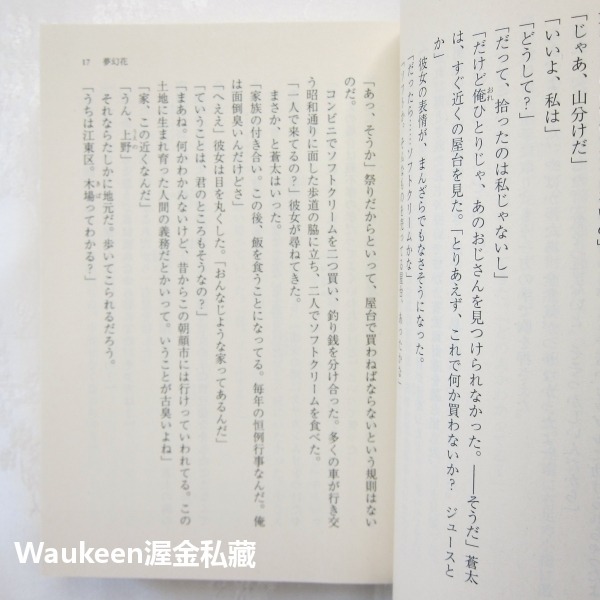 「じゃあ、山分けだ」
「いいよ、私は」
「どうして?」
「だって、拾ったのは私じゃないし」
「だけど俺ひとりじゃ、あのおじさんを見つけられなかった。――そうだ」蒼太
は、すぐ近くの屋台を見た。「とりあえず、これで何か買わないか? ジュースと
か」
彼女の表情が、まんざらでもなさそうになった。
「だったら……ソフトクリームかな」
17 夢幻花
「あっ、そうか」祭りだからといって、屋台で買わねばならないという規則はない
のだ。
コンビニでソフトクリームを二つ買い、釣り銭を分け合った。多くの車が行き交
う昭和通りに面した歩道の脇に立ち、二人でソフトクリームを食べた。
「一人で来てるの?」彼女が尋ねてきた。
まさか、と蒼太はいった。
「家族の付き合い。この後、飯を食うことになってる。毎年の恒例行事なんだ。俺
は面倒臭いんだけどさ」
「へええ」彼女は目を丸くした。「おんなじような家ってあるんだ」
「ていうことは、君のところもそうなの?」
「まあね。何かわかんないけど、昔からこの朝顔市には行けっていわれてる。この
土地に生まれ育った人間の義務だとかいって。いうことが古臭いよね」
「家、この近くなんだ」
「うん、上野」
それならたしかに地元だ。歩いてこられるだろう。
「うちは江東区。木場ってわかる?」
Waukeen渥金私藏